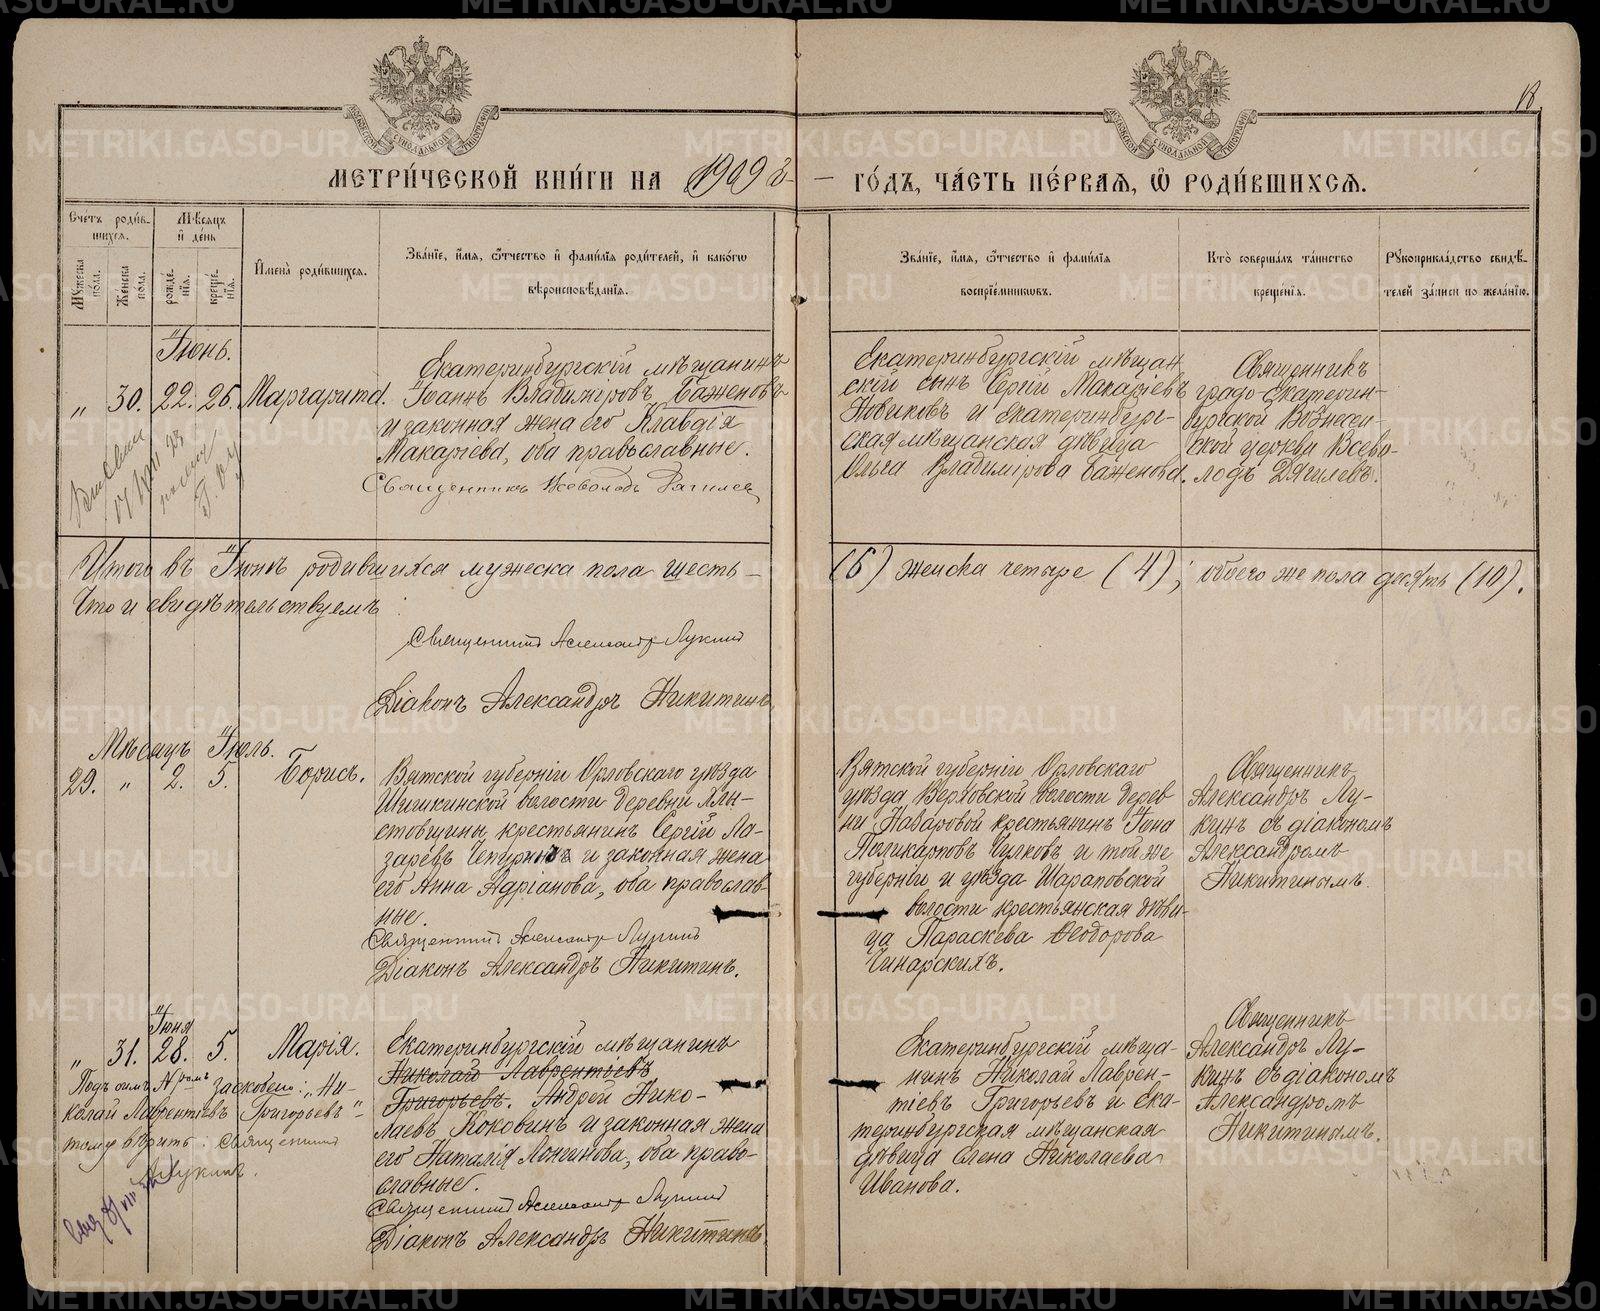 МЕТРИ́ЧЕСКОЙ КНИ́ГИ НА 1909 й
ГО́ДЪ, ЧА́СТЬ ПЕ́РВАЯ, Ѡ҆ РОДИ́ВШИХСЯ.
18
Сче́тъ роди́в-
шихся.
Му́жеска по́ла.
Же́нска по́ла.
Мѣ́сяцъ и҆ де́нь
рожде́нїя.
креще́нїя.
И҆мена̀ роди́вшихся.
Зва́нїе, и҆́мя, ѻ҆́тчество и҆ фами́лїя роди́телей, и҆ како́гѡ
вѣроисповѣ́данїя.
Зва́нїе, и҆́мя, ѻ҆́тчество и҆ фами́лїя
воспрїе́мниковъ.
Кто̀ соверша́лъ та́инство
креще́нїя.
Рукоприкла́дство свидѣ́-
телей за́писи по жела́нїю.
Іюнь.
„ 30. 22. 26. Маргарита.
Екатеринбургскій мѣщанинъ
Іоаннъ Владиміровъ Баженовъ
и законная жена его Клавдія
Макаріева, оба православные.
Священникъ Всеволодъ Дягилев
Екатеринбургскій мѣщан
скій сынъ Сергій Макаріевъ
Новиковъ и Екатеринбург-
ская мѣщанская дѣвица
Ольга Владимірова Баженова.
Священникъ
градо-Екатерин-
бургской Вознесен-
ской церкви Всево-
лодъ Дягилевъ.
Итого въ Іюнѣ родившихся мужеска пола шесть —
(6) женска четыре (4); обоего же пола десять (10).
Что и свидѣтельствуемъ:
Священникъ Александръ Лукинъ
Діаконъ Александръ Никитинъ
Мѣсяцъ Іюль.
29. „ 2. 5. Борисъ.
Вятской губерніи Орловскаго уѣзда
Шишкинской волости деревни Хлы-
стовщины крестьянинъ Сергій Ла-
заревъ Чепурныхъ и законная жена
его Анна Адріанова, оба православ-
ные.
Священникъ Александръ Лукинъ
Діаконъ Александръ Никитинъ.
Вятской губерніи Орловскаго
уѣзда Верховской волости дерев
ни Назаровой крестьянинъ Іона
Поликарповъ Чулковъ и той же
губерніи и уѣзда Шараповской
волости крестьянская дѣви-
ца Параскева Ѳеодорова
Чинарскихъ.
Священникъ
Александръ Лу-
кинъ съ діакономъ
Александромъ
Никитинымъ.
Іюня
„ 31. 28. 5. Марія.
Подъ симъ №ромъ заскоблено: „Ни-
колай Лаврентіевъ Григорьевъ"-
тому вѣрить: Священникъ
А Лукинъ.
Екатеринбургскій мѣщанинъ
Николай Лаврентіевъ
Григорьевъ. Андрей Нико-
лаевъ Коковинъ и законная жена
его Наталія Лонгинова, оба право-
славные.
Священникъ Александръ Лукинъ
Діаконъ Александръ Никитинъ.
Екатеринбургскій мѣща-
нинъ Николай Лаврен-
тіевъ Григорьевъ и Ека-
теринбургская мѣщанская
дѣвица Елена Николаева
Иванова.
Священникъ
Александръ Лу-
кинъ съ діакономъ
Александромъ
Никитинымъ.
METRIKI.GASO-URAL.RU